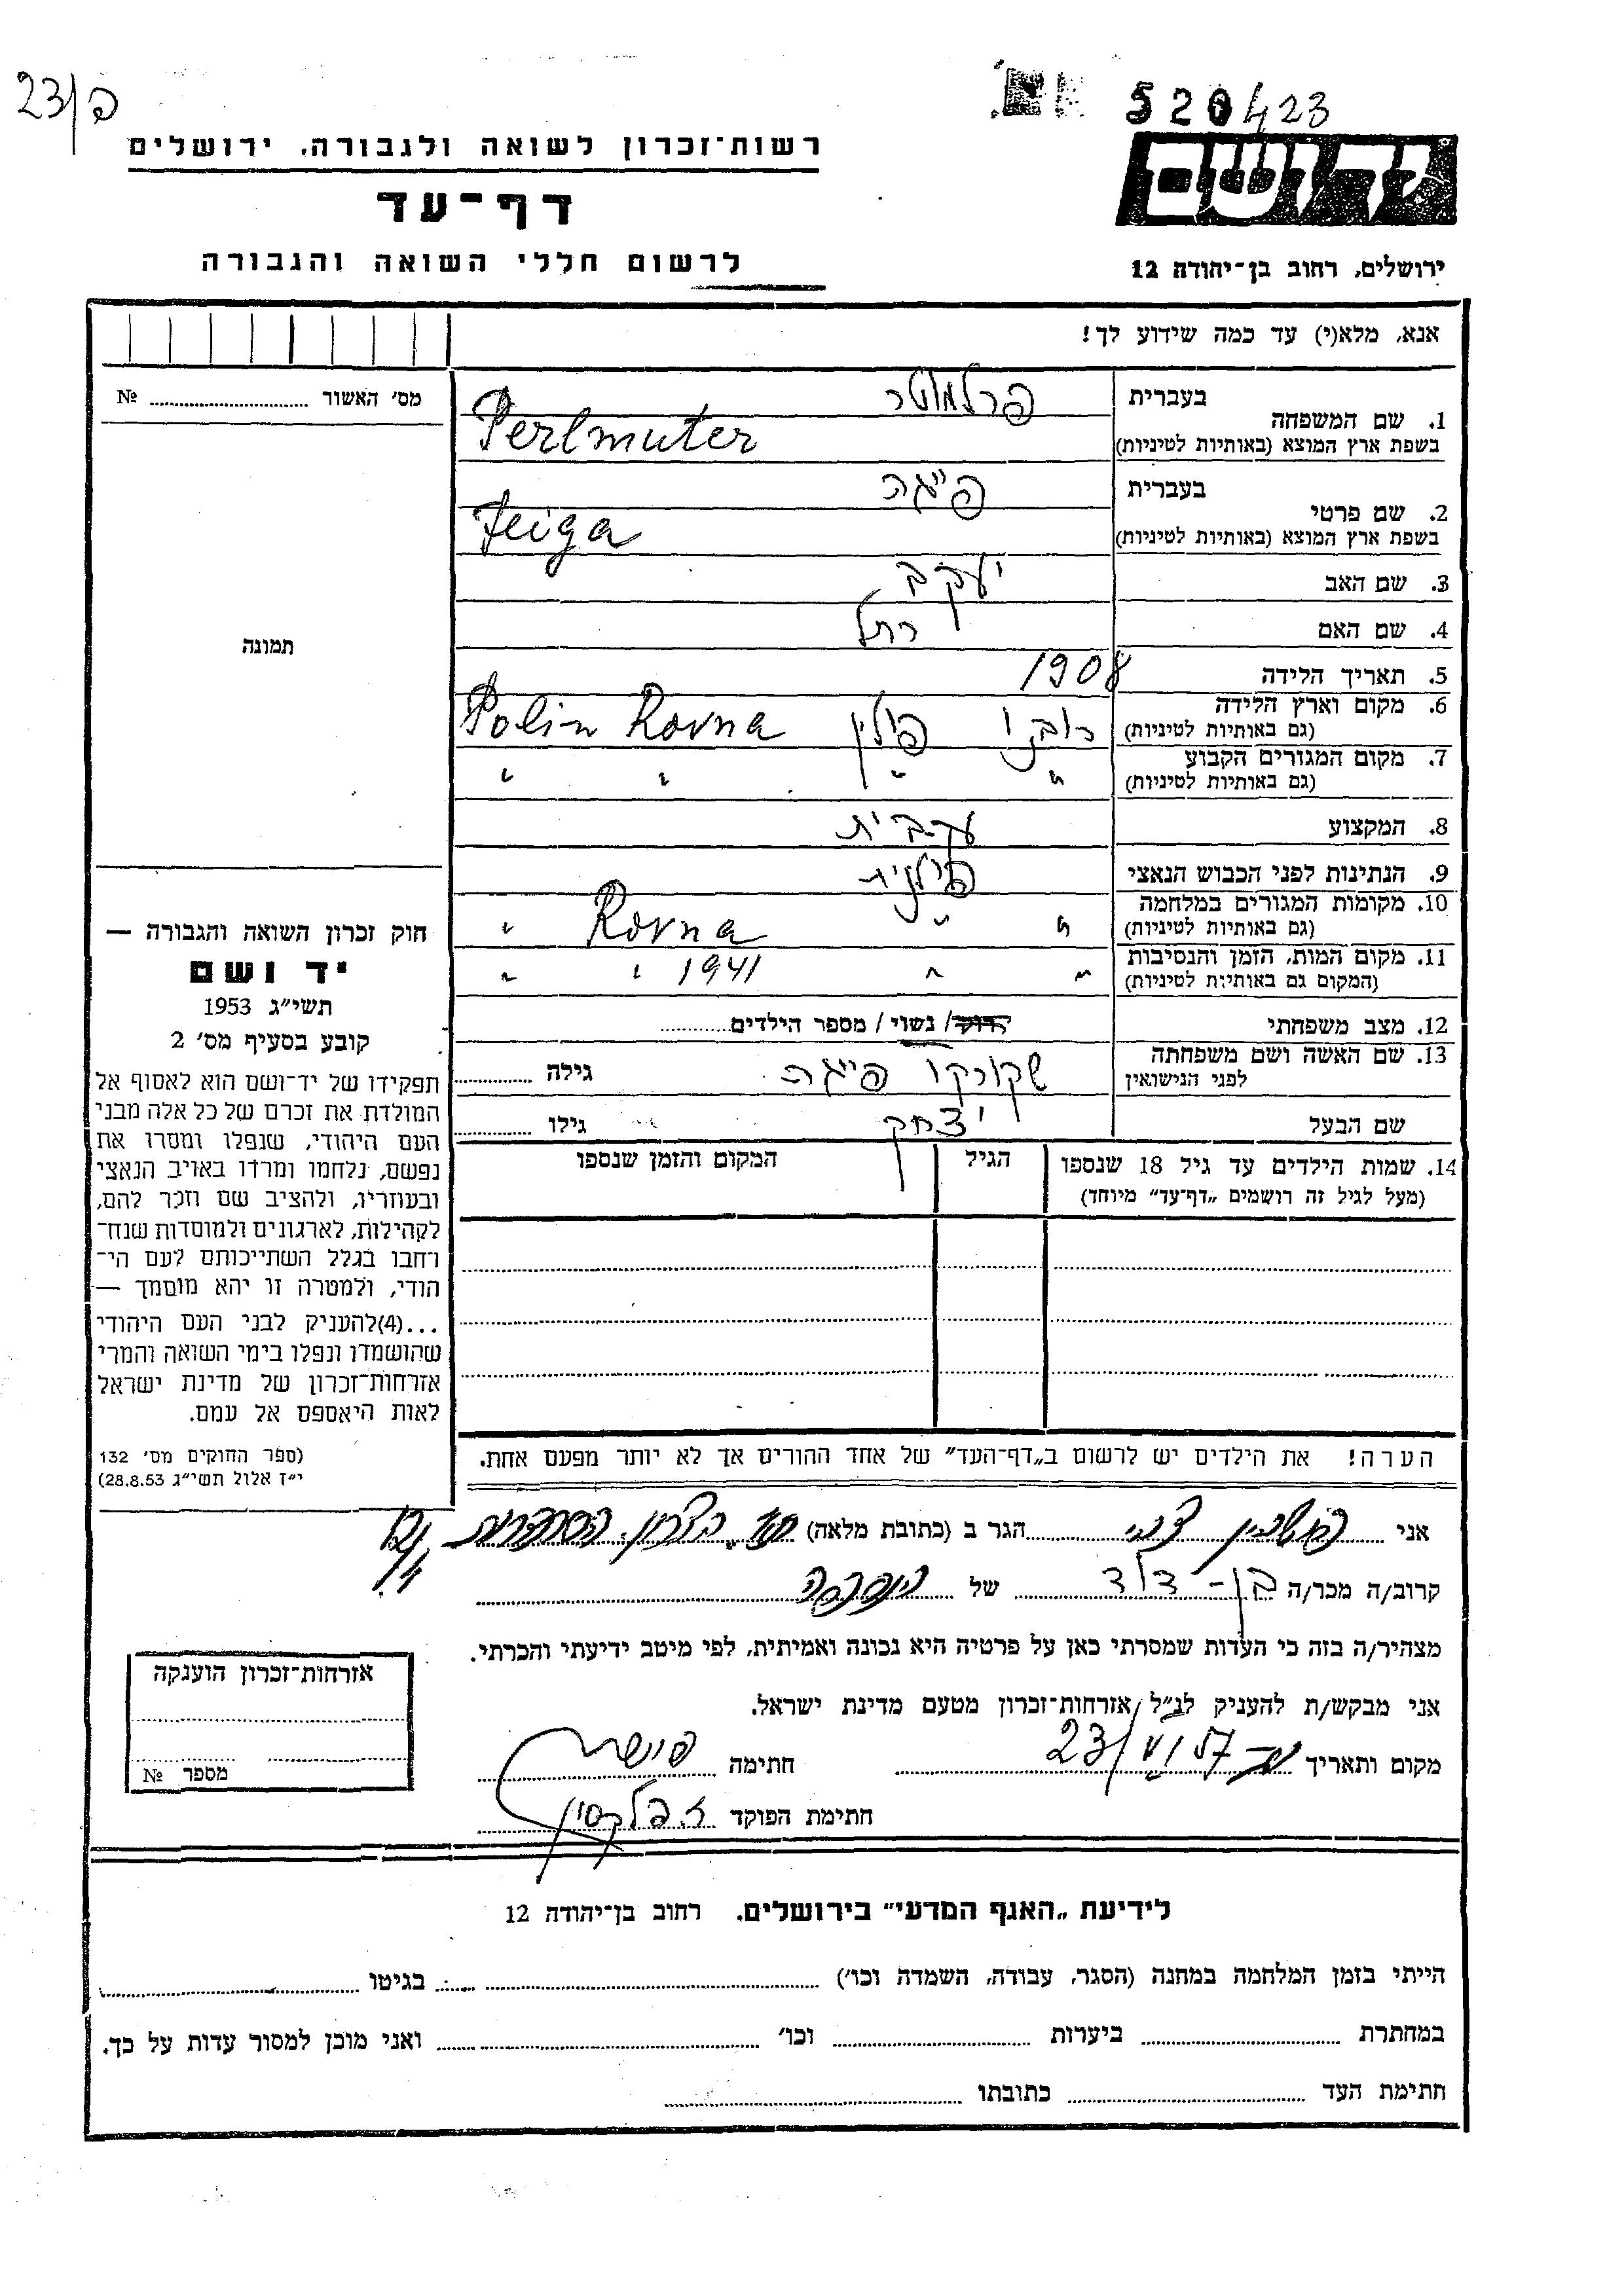 פ/23
520423
רשות־זכרון לשואה ולגבורה, ירושלים
יד ושם
דף־עד
לרשום חללי השואה והגבורה
ירושלים, רחוב בן־יהודה 12
אנא, מלא(י) עד כמה שידוע לך!
מס' האשור № 
1. שם המשפחה בעברית פרלמוטר
בשפת ארץ המוצא (באותיות לטיניות) Perlmuter
2. שם פרטי בעברית פייגה
בשפת ארץ המוצא (באותיות לטיניות) Feiga
3. שם האב יעקב
4. שם האם רחל
תמונה
5. תאריך הלידה 1908
6. מקום וארץ הלידה (גם באותיות לטיניות) רובנו פולין Polin Rovna
7. מקום המגורים הקבוע (גם באותיות לטיניות) " " " "
8. המקצוע עק־בית
9. הנתינות לפני הכבוש הנאצי פולנית
10. מקומות המגורים במלחמה (גם באותיות לטיניות) " " Rovna "
11. מקום המות, הזמן והנסיבות (המקום גם באותיות לטיניות) " " 1941 " "
12. מצב משפחתי רווק / נשוי / מספר הילדים
13. שם האשה ושם משפחתה לפני הנישואין שקורקו פייגה גילה
שם הבעל יצחק גילו
14. שמות הילדים עד גיל 18 שנספו הגיל המקום והזמן שנספו
(מעל לגיל זה רושמים „דף־עד" מיוחד)
חוק זכרון השואה והגבורה —
יד ושם
תשי"ג 1953
קובע בסעיף מס' 2
תפקידו של יד־ושם הוא לאסוף אל
המולדת את זכרם של כל אלה מבני
העם היהודי, שנפלו ומסרו את
נפשם, נלחמו ומרדו באויב הנאצי
ובעוזריו, ולהציב שם וזכר להם,
לקהילות, לארגונים ולמוסדות שנח־
רחבו בגלל השתייכותם לעם הי־
הודי, ולמטרה זו יהא מוסמך —
...(4)להעניק לבני העם היהודי
שהושמדו ונפלו בימי השואה והמרי
אזרחות־זכרון של מדינת ישראל
לאות היאספם אל עמם.
(ספר החוקים מס' 132
י"ז אלול תשי"ג 28.8.53)
הערה! את הילדים יש לרשום ב„דף־העד" של אחד ההורים אך לא יותר מפעם אחת.
אני הגר ב (כתובת מלאה)
קרוב/ה מכר/ה בן־דוד של
מצהיר/ה בזה כי העדות שמסרתי כאן על פרטיה היא נכונה ואמיתית, לפי מיטב ידיעתי והכרתי.
אני מבקש/ת להעניק לנ"ל אזרחות־זכרון מטעם מדינת ישראל.
מקום ותאריך 23/VI 57 חתימה
חתימת הפוקד
אזרחות־זכרון הוענקה
מספר №
לידיעת „האגף המדעי" בירושלים. רחוב בן־יהודה 12
הייתי בזמן המלחמה במחנה (הסגר, עבודה, השמדה וכו') בגיטו
במחתרת ביערות וכו' ואני מוכן למסור עדות על כך.
חתימת העד כתובתו